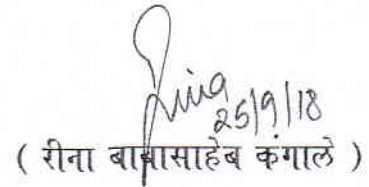 Rina
25/9/18
( रीना बाबासाहेब कंगाले )